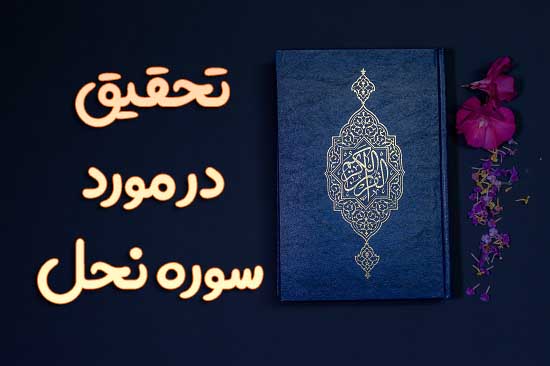 تحقیق
در مورد
سوره نحل
القرآن الكريم